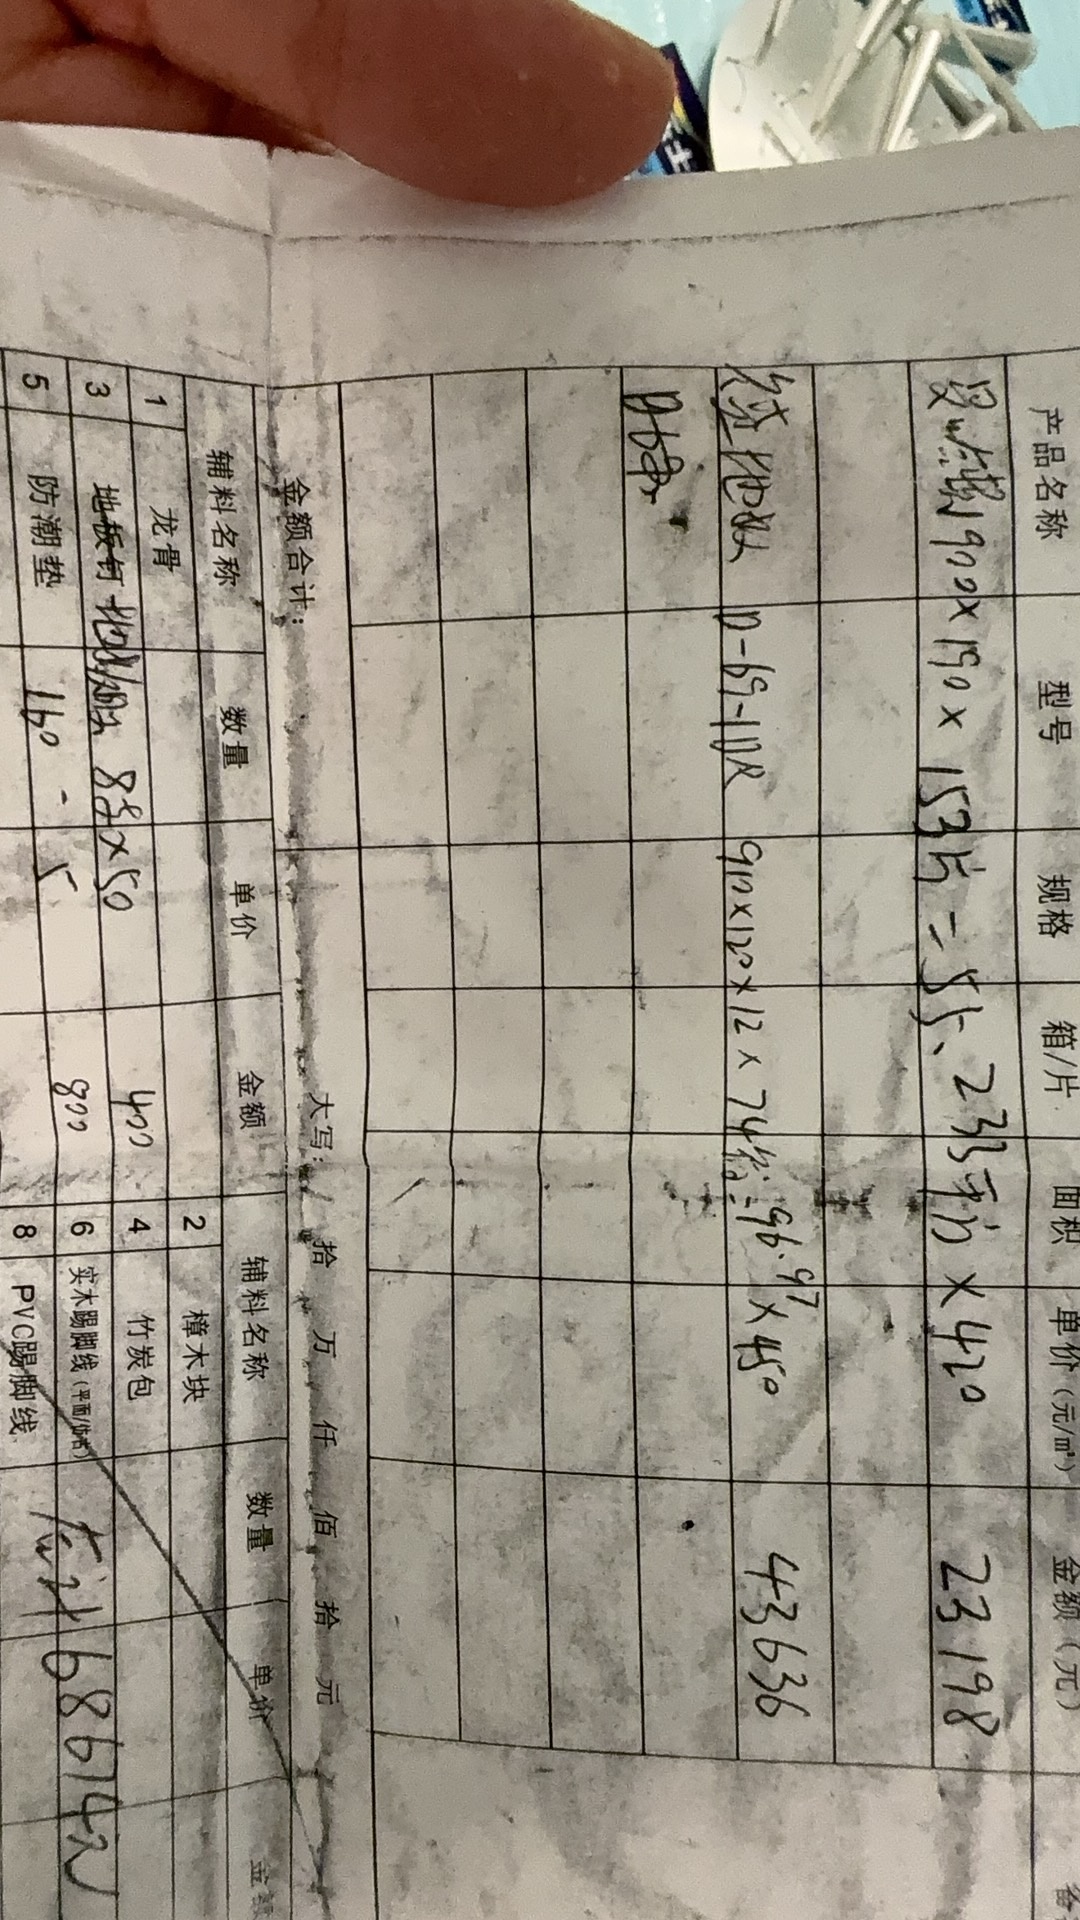 产品名称 型号 规格 箱/片 面积 单价(元/㎡) 金额(元) 备
1900×190× 153片=55.233平方 ×420 23198
地板 D-69-1DR 910×120×12×74箱=96.97×450 43636
金额合计: 大写: 拾 万 仟 佰 拾 元
辅料名称 数量 单价 金额 辅料名称 数量 单价 金额
1 龙骨 2 樟木块
3 地板钉 8发×50 400 4 竹炭包
5 防潮垫 160 - 5 800 6 实木踢脚线(平面/仿古)
8 PVC踢脚线
68674元